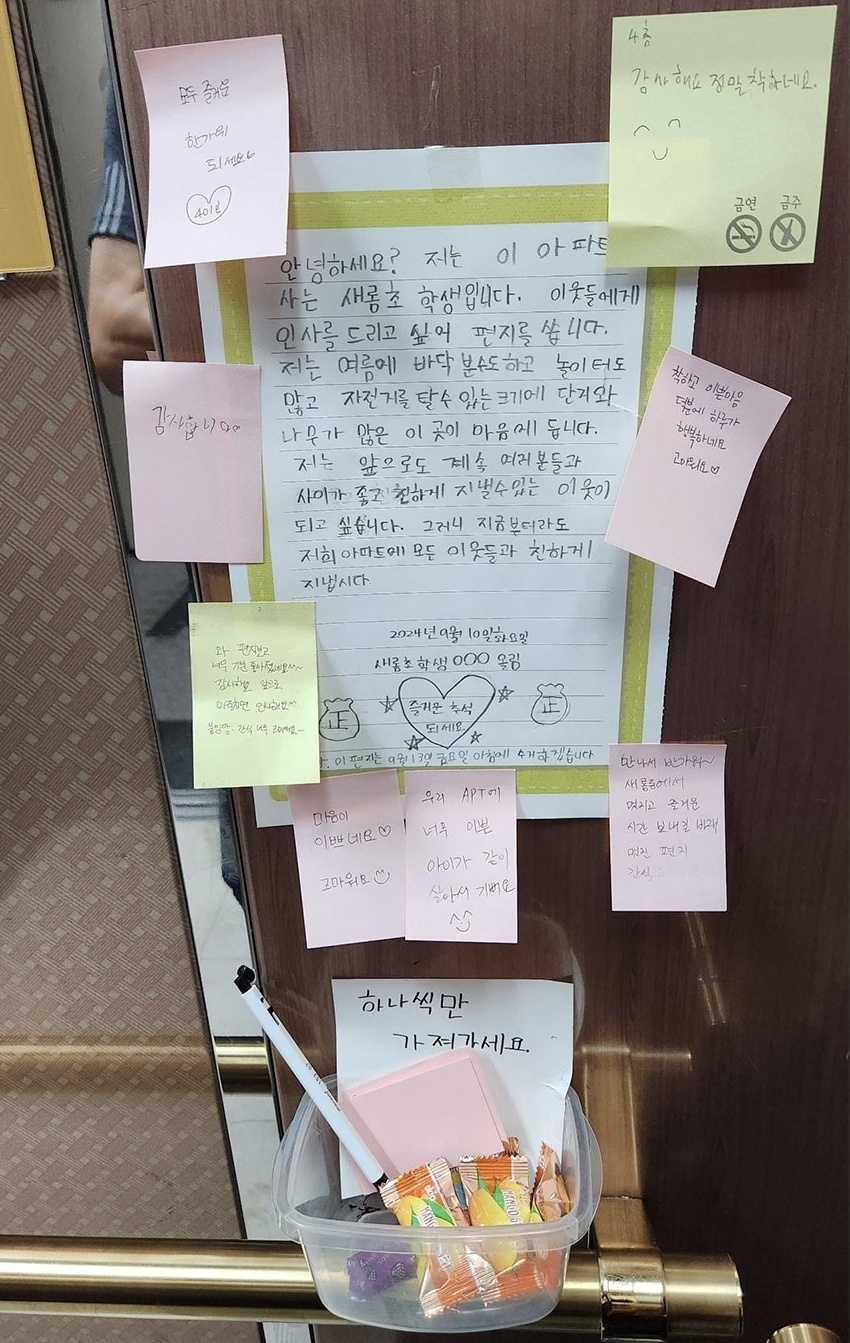 모두 즐거운
한가위
되세요
401호
4층
감사해요 정말 착하네요.
금연 금주
안녕하세요? 저는 이 아파트
사는 새롬초 학생입니다. 이웃들에게
인사를 드리고 싶어 편지를 씁니다.
저는 여름에 바닥 분수도하고 놀이터도
많고 자전거를 탈수 있는 크기에 단지와
나무가 많은 이 곳이 마음에 듭니다.
저는 앞으로도 계속 여러분들과
사이가 좋고 친하게 지낼수있는 이웃이
되고 싶습니다. 그러니 지금부터라도
저희 아파트에 모든 이웃들과 친하게
지냅시다
2024년 9월 10일 화요일
새롬초 학생 OOO 올림
正 즐거운 추석 正
되세요
이 편지는 9월 13일 금요일 아침에 수거하겠습니다
감사합니다
착하고 이쁜마음
덕분에 하루가
행복하네요
고마워요♡
와 편지보고
너무 기분 좋아졌네요~~
감사해요 앞으로
마주치면 인사해요^^
간식 너무 고마워요~
마음이
이쁘네요♡
고마워요
우리 APT에
너무 이쁜
아이가 같이
살아서 기뻐요
^^
만나서 반가워~
새롬동에서
멋지고 즐거운
시간 보내길 바래
멋진 편지
간식
하나씩만
가져가세요.
MANGO